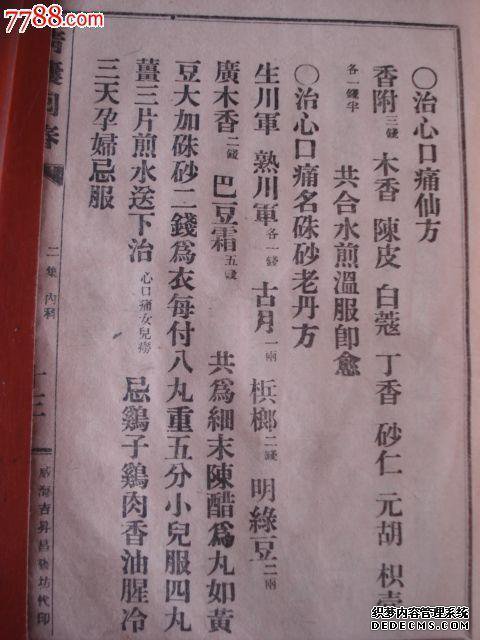 7788.com
○治心口痛仙方
香附三錢 木香 陳皮 白蔻 丁香 砂仁 元胡 枳壳
各一錢半 共合水煎溫服卽愈
○治心口痛名硃砂老丹方
生川軍 熟川軍各一錢 古月一兩 梹榔二錢 明綠豆二兩
廣木香二錢 巴豆霜五錢 共為細末陳醋為丸如黄
豆大加硃砂二錢為衣每付八丸重五分小兒服四丸
薑三片煎水送下治心口痛女兒癆 忌鷄子鷄肉香油腥冷
三天孕婦忌服
回春
二集 內科
威海吉昇昌發坊代印
织梦内容管理系统
http://www.dedecms.com